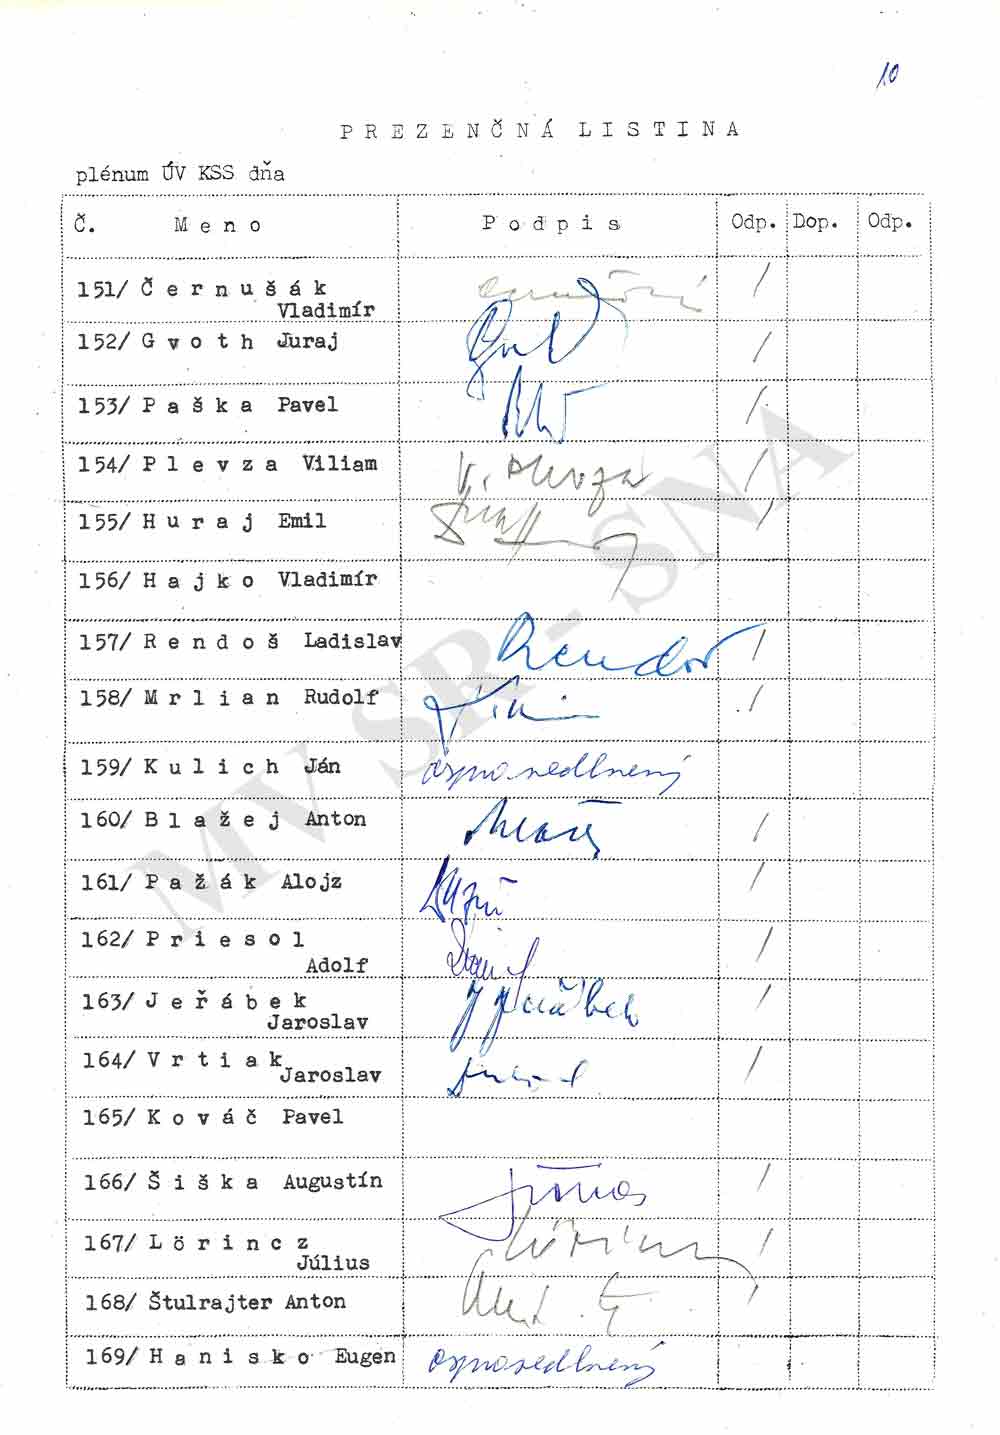 10
PREZENČNÁ LISTINA
plénum ÚV KSS dňa
Č. Meno Podpis Odp. Dop. Odp.
151/ Černušák
Vladimír
152/ Gvoth Juraj
153/ Paška Pavel
154/ Plevza Viliam V. Plevza
155/ Huraj Emil
156/ Hajko Vladimír
157/ Rendoš Ladislav Rendoš
158/ Mrlian Rudolf
159/ Kulich Ján ospravedlnený
160/ Blažej Anton
161/ Pažák Alojz
162/ Priesol
Adolf
163/ Jeřábek J Jeřábek
Jaroslav
164/ Vrtiak
Jaroslav
165/ Kováč Pavel
166/ Šiška Augustín
167/ Lörincz Lörincz
Július
168/ Štulrajter Anton
169/ Hanisko Eugen ospravedlnený
MV SR - SNA